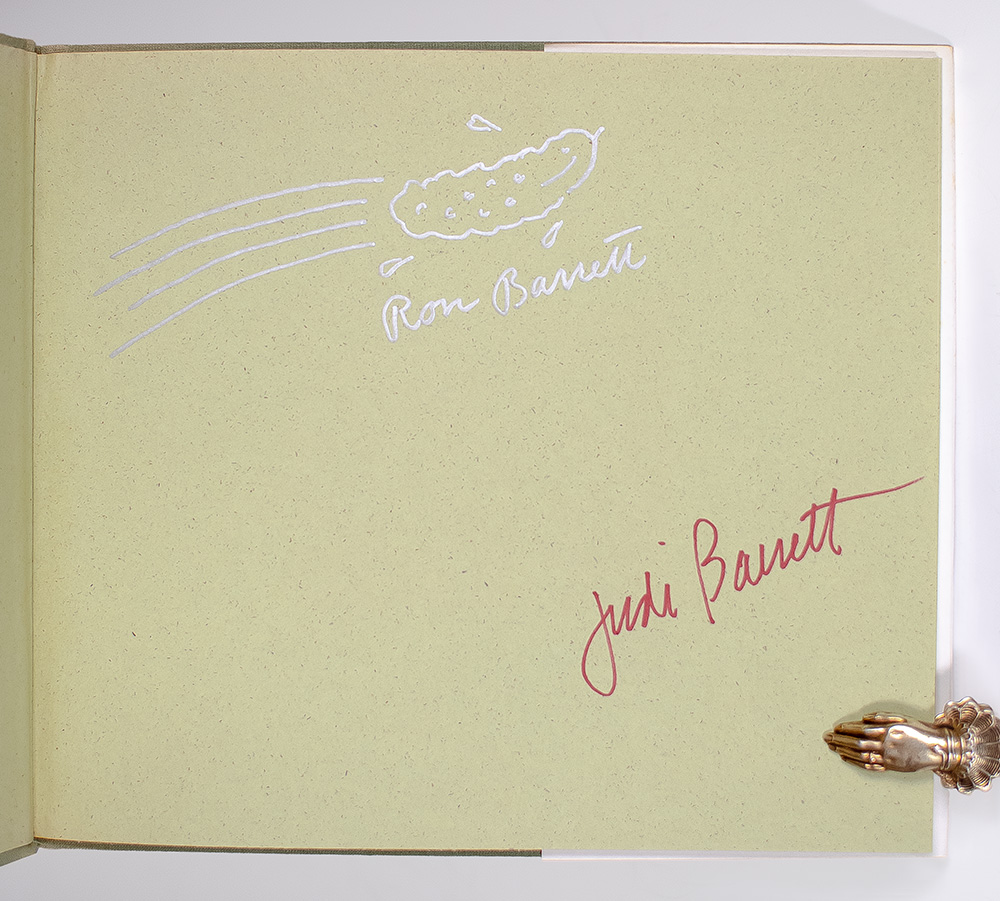 Ron Barrett
Judi Barrett